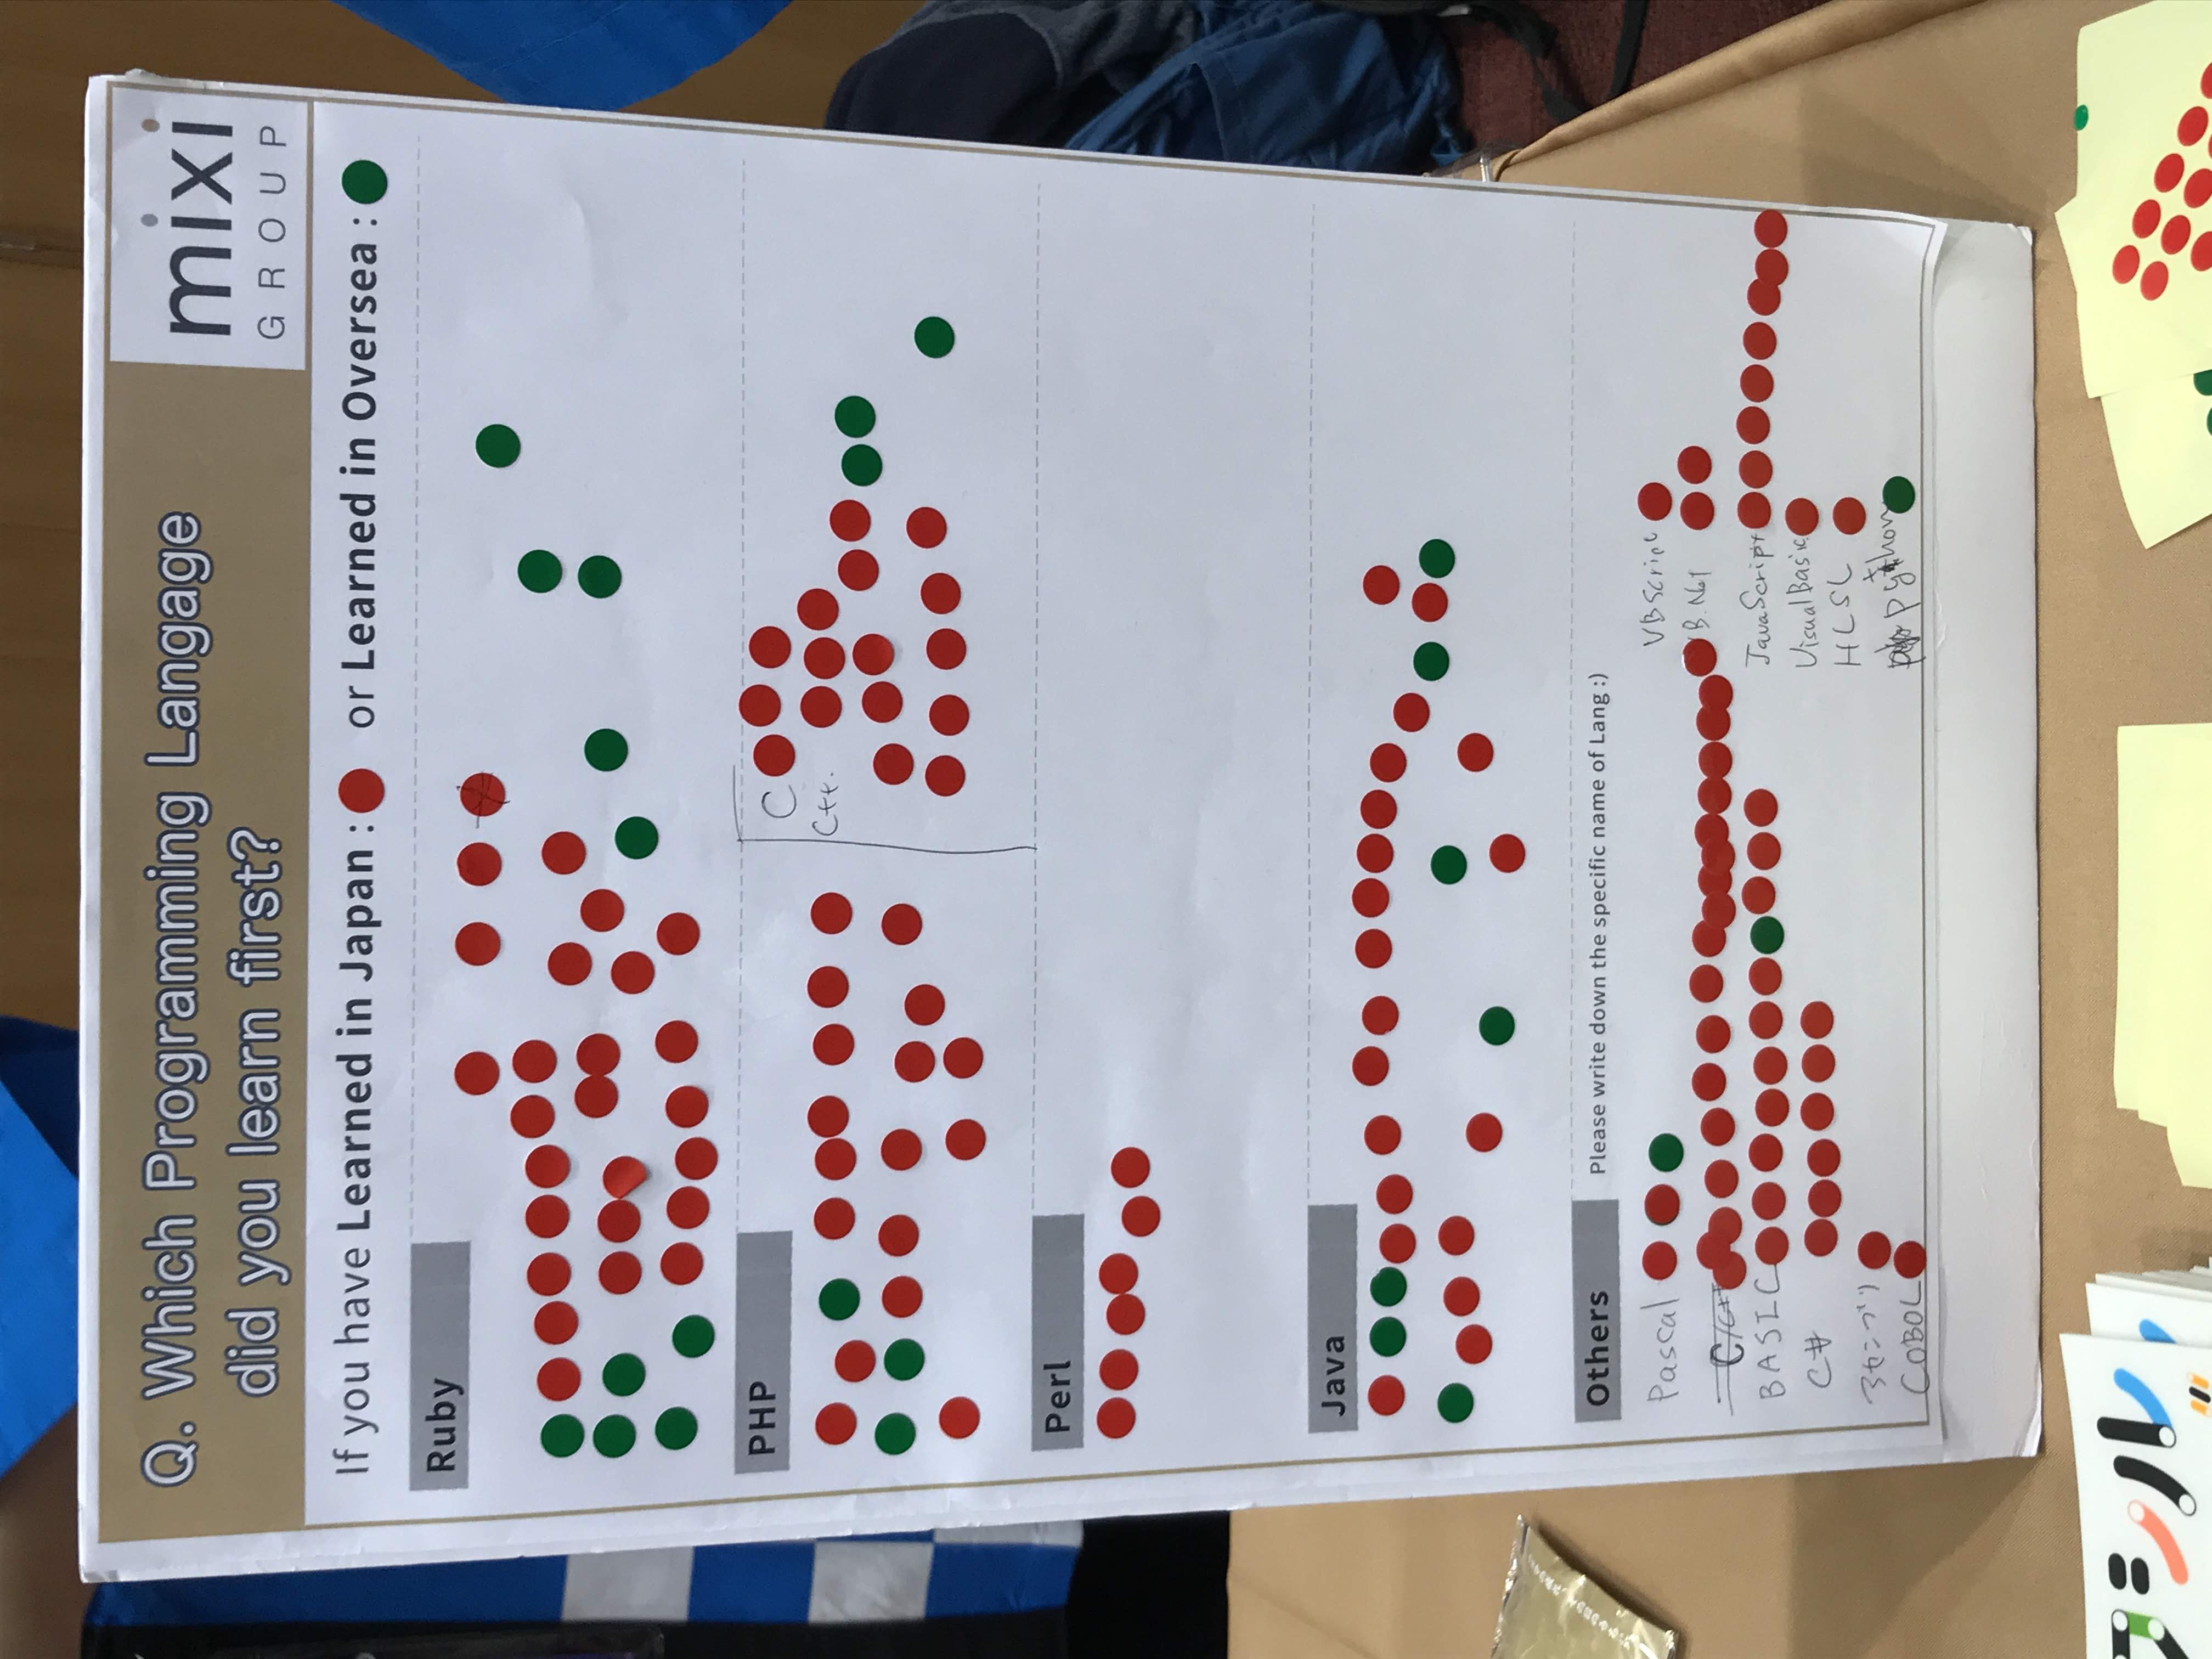 Q. Which Programming Langage
did you learn first?
mixi
GROUP
If you have Learned in Japan : or Learned in Oversea :
Ruby
PHP
C
C++.
Perl
Java
Others Please write down the specific name of Lang :)
Pascal
C/C++
BASIC
C#
アセンブリ
COBOL
VBScript
VB.Net
JavaScript
VisualBasic
HLSL
python
シル